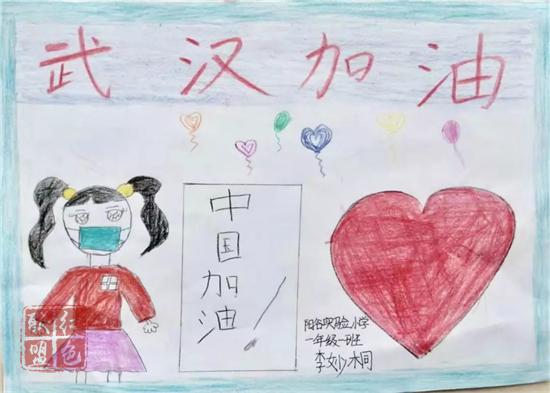 武汉加油
中国加油！
阳谷实验小学
一年级一班
李妙桐
红色
联盟